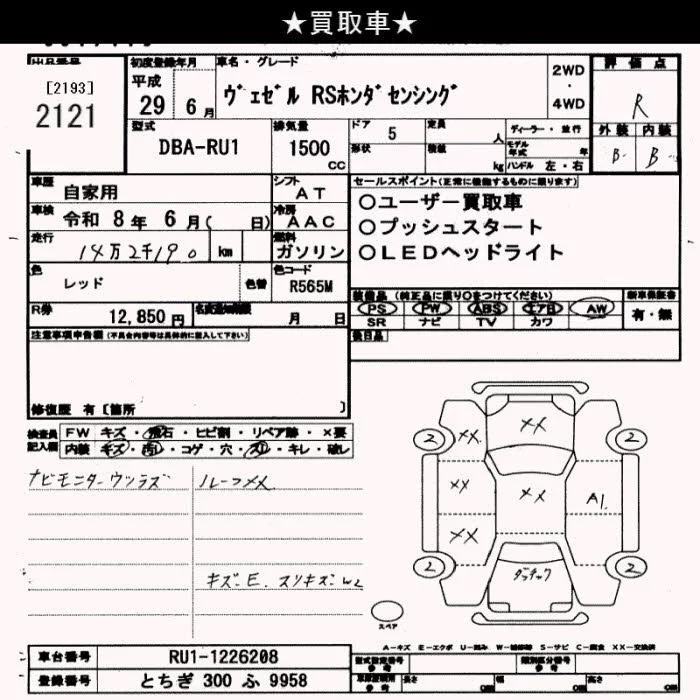 ★買取車★
出品番号
[2193]
2121
初度登録年月
平成
29 6月
車名・グレード
ヴェゼル RSホンダセンシング
2WD
・
4WD
評価点
R
外装 内装
B- B-
型式
DBA-RU1
排気量
1500
CC
ドア 5
定員 人
形状
積載 kg
ディーラー・並行
モデル年式 年
ハンドル 左・右
車歴 自家用
シフト AT
車検 令和 8年 6月( 日)
冷房 AAC
走行 14万2千190 km
燃料 ガソリン
色 レッド
色替
色コード R565M
R券 12,850円
名変通知期限 月 日
セールスポイント(正常に機能するものに限ります)
○ユーザー買取車
○プッシュスタート
○LEDヘッドライト
装備品 (純正品に限り○をつけてください)
新車保証書
PS PW ABS エアB AW
SR ナビ TV カワ
有・無
後日品
注意事項申告欄(不具合内容等は具体的に記入して下さい)
修復歴 有〔箇所 〕
検査員記入欄
FW キズ・飛石・ヒビ割・リペア跡・×要
内装 キズ・汚レ・コゲ・穴・スレ・キレ・破レ
ナビモニターウツラズ
ルーフメメ
キズ・E. スリキズ・W2
2
××
××
2
××
××
A1
××
2
ダッチャク
2
スペア
A-キズ E-エクボ U-凹み W-補修跡 S-サビ C-腐食 XX-交換済
車台番号 RU1-1226208
登録番号 とちぎ 300 ふ 9958
型式指定番号 参考
類別区分番号 参考
長さ 参考 cm
幅 cm
高さ cm